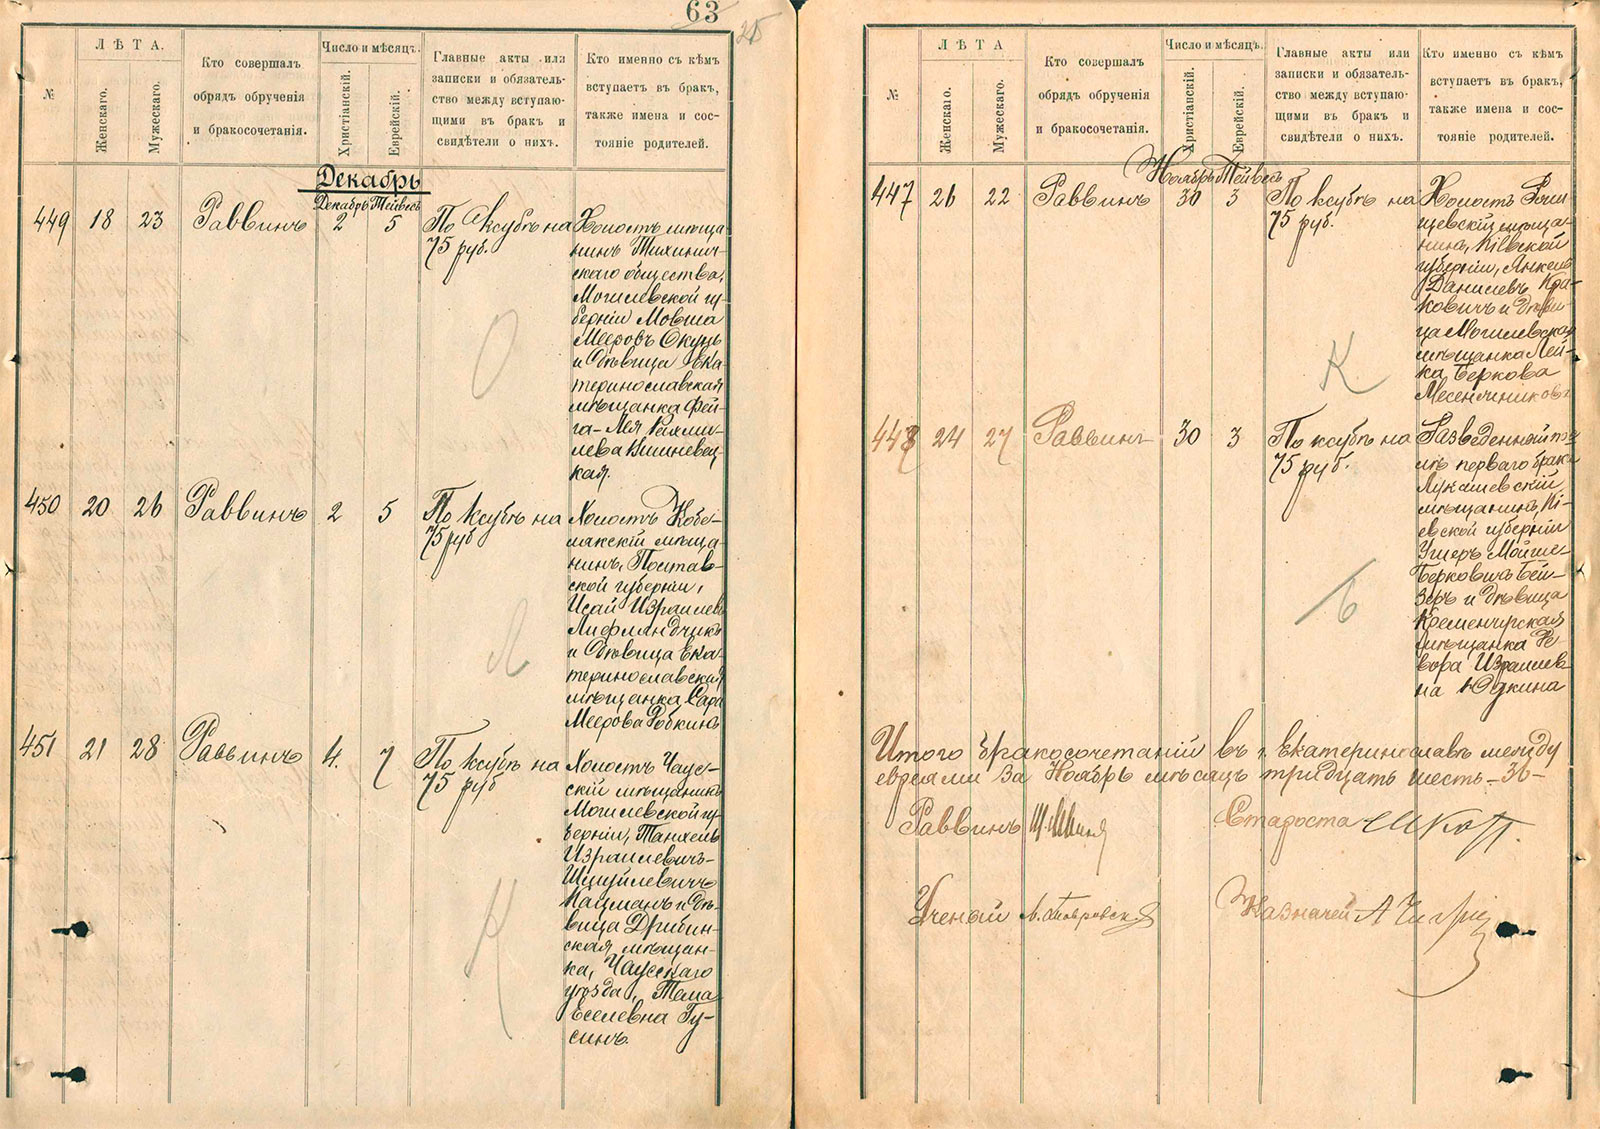 63
25
№
ЛѢТА.
Женскаго.
Мужескаго.
Кто совершалъ
обрядъ обрученія
и бракосочетанія.
Число и мѣсяцъ.
Христіанскій.
Еврейскій.
Главные акты или
записки и обязатель-
ство между вступаю-
щими въ бракъ и
свидѣтели о нихъ.
Кто именно съ кѣмъ
вступаетъ въ бракъ,
также имена и сос-
тояніе родителей.
Декабрь
Декабрь Тейвесъ
449 18 23 Раввинъ 2 5 По ксубѣ на
75 руб.
Холостъ мѣща-
нинъ Тихинич-
скаго общества,
Могилевской гу-
берніи Мовша
Мееровъ Окунь
и дѣвица Ека-
теринославская
мѣщанка Фей-
га-Лея Рахми-
лева Вишневец-
кая.
О
450 20 26 Раввинъ 2 5 По ксубѣ на
75 руб
Холостъ Кобе-
лякскій мѣща-
нинъ, Полтав-
ской губерніи,
Исай Израилевъ
Лифляндчикъ
и дѣвица Ека-
теринославская
мѣщанка Сара
Меерова Робкинъ
Л
451 21 28 Раввинъ 4. 7 По ксубѣ на
75 руб
Холостъ Чаус-
скій мѣщанинъ
Могилевской гу-
берніи, Танхель
Израилевичъ-
Шмуйлевичъ
Кацманъ и дѣ-
вица Дрибин-
ская мѣщан-
ка, Чаусскаго
уѣзда, Тема
Еселевна Гу-
синъ.
К
№
ЛѢТА
Женскаго.
Мужескаго.
Кто совершалъ
обрядъ обрученія
и бракосочетанія.
Число и мѣсяцъ.
Христіанскій.
Еврейскій.
Главные акты или
записки и обязатель-
ство между вступаю-
щими въ бракъ и
свидѣтели о нихъ.
Кто именно съ кѣмъ
вступаетъ въ бракъ,
также имена и сос-
тояніе родителей.
Ноябрь Тейвесъ
447 26 22 Раввинъ 30 3 По ксубѣ на
75 руб.
Холостъ
щевскій мѣща-
нинъ, Кіевской
губерніи, Янкель
Данилевъ Кра-
ковичъ и дѣви-
ца Могилевская
мѣщанка Лей-
ка Беркова
Месенчиникова
К
448 24 27 Раввинъ 30 3 По ксубѣ на
75 руб.
Разведенный
перваго брака
Лукашевскій
мѣщанинъ, Кі-
евской губерніи
Ушеръ Мойше-
Берковичъ Бей-
зеръ и дѣвица
Кременчугская
мѣщанка Де-
вора Израилев-
на Юдкина
Ь
Итого бракосочетаній въ г. Екатеринославѣ между
евреями за Ноябрь мѣсяцъ тридцать шесть -36-
Раввинъ
Староста
Ученый
Казначей